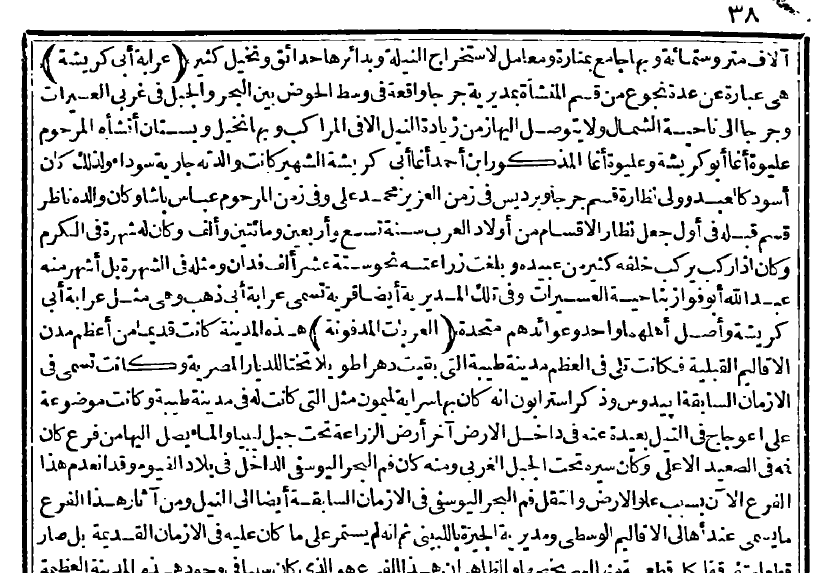 ٣٨
آلاف متر وستمائة وبها جامع بمنارة ومعامل لاستخراج النيلة وبدائرها حدائق ونخيل كثير (عرابة أبى كريشة)
هى عبارة عن عدة نجوع من قسم المنشأة بمديرية جرجا واقعة فى وسط الحوض بين البحر والجبل فى غربى العسيرات
وجرجا الى ناحية الشمال ولا يتوصل اليها زمن زيادة النيل الا فى المراكب وبها نخيل وبستان أنشأه المرحوم
عليوة أغا أبو كريشة وعليوة أغا المذكور ابن أحمد أغا أبى كريشة الشهير كانت والدته جارية سوداء ولذلك كان
أسود كالعبد وولى نظارة قسم جرجا وبرديس فى زمن العزيز محمد على وفى زمن المرحوم عباس باشا وكان والده ناظر
قسم قبله فى أول جعل نظار الاقسام من أولاد العرب سنة تسع وأربعين ومائتين وألف وكان له شهرة فى الكرم
وكان اذا ركب يركب خلفه كثير من عبيده وبلغت زراعته نحو ستة عشر ألف فدان ومثله فى الشهرة بل أشهر منه
عبد الله أبو فواز بناحية العسيرات وفى تلك المديرية أيضا قرية تسمى عرابة أبى ذهب وهى مثل عرابة أبى
كريشة وأصل أهلهما واحد وعوائدهم متحدة (العربات المدفونة) هذه المدينة كانت قديما من أعظم مدن
الاقاليم القبلية فكانت تلى فى العظم مدينة طيبة التى بقيت دهرا طويلا تختا للديار المصرية وكانت تسمى فى
الازمان السابقة ابيدوس وذكر استرابون انه كان بها سراية لميمون مثل التى كانت له فى مدينة طيبة وكانت موضوعة
على اعوجاج فى النيل بعيدة عنه فى داخل الارض آخر أرض الزراعة تحت جبل ليبيا والماء يصل اليها من فرع كان
فمه فى الصعيد الاعلى وكان سيره تحت الجبل الغربى ومنه كان فم البحر اليوسفى الداخل فى بلاد الفيوم وقد انعدم هذا
الفرع الآن بسبب علو الارض وانتقل فم البحر اليوسفى فى الازمان السابقة أيضا الى النيل ومن آثار هذا الفرع
ما يسمى عند أهالى الاقاليم الوسطى ومديرية الجيزة باللبينى ثم انه لم يستمر على ما كان عليه فى الازمان القديمة بل صار